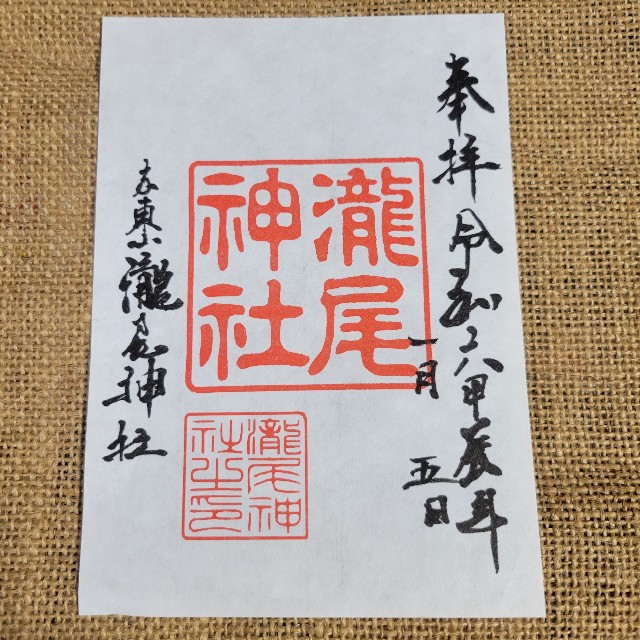 奉拝 令和六甲辰年
一月五日
瀧尾
神社
瀧尾神
社之印
東山瀧尾神社